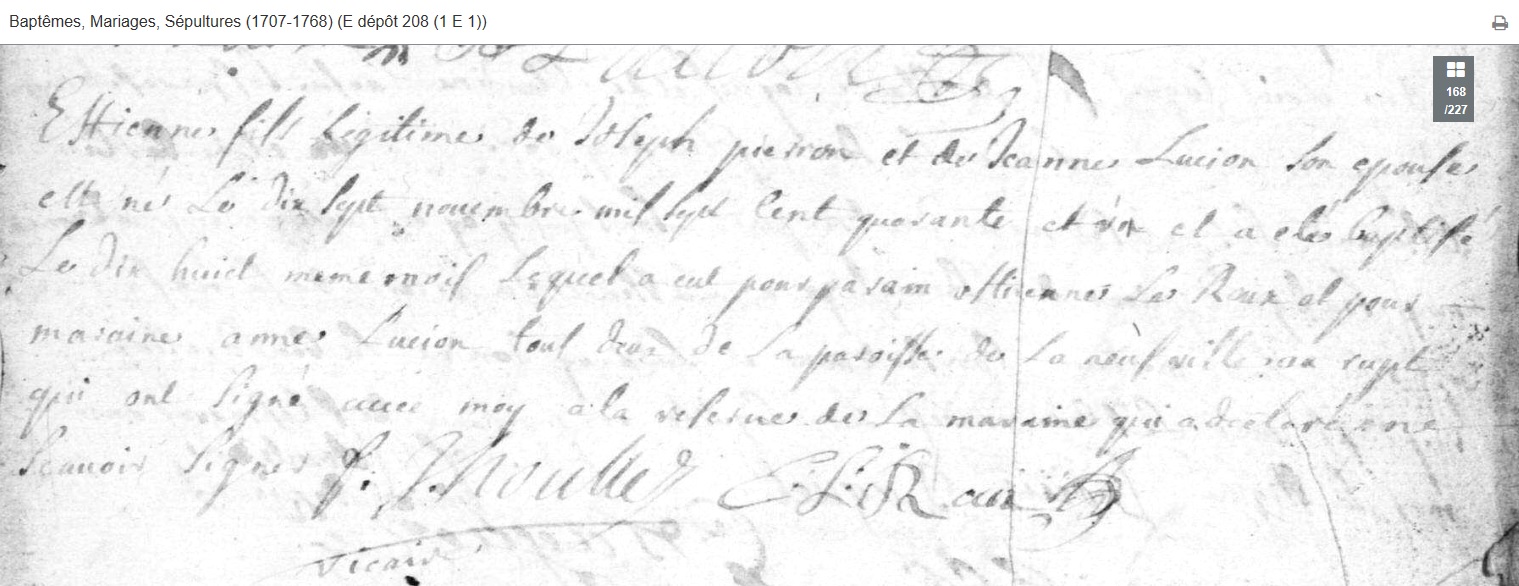 Baptêmes, Mariages, Sépultures (1707-1768) (E dépôt 208 (1 E 1))
168
/227
Estienne fils legitime de Joseph pierron et de Jeanne Lucion son epouse
est né le dix sept novembre mil sept cent quarante et six et a eté baptisé
Le dix huict meme mois Lequel a eut pour parain estienne Le Roux et pour
maraine anne Lucion tous deux de La paroisse de La neufville au rupt
qui ont signé avec moy a la reserve de La maraine qui a declaré ne
scavoir signer
vicair